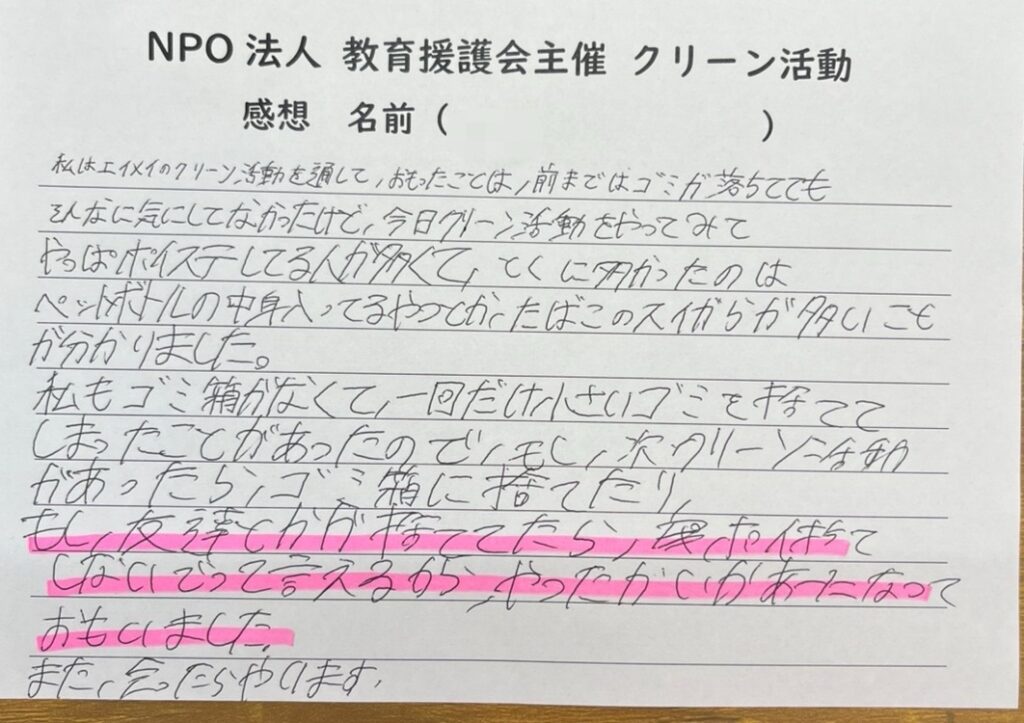 NPO 法人 教育援護会主催 クリーン活動
感想 名前 ( )
私はエイメイのクリーン活動を通して、おもったことは、前まではゴミが落ちてても
そんなに気にしてなかったけど、今日クリーン活動をやってみて
やっぱポイステしてる人が多くて、とくに多かったのは
ペットボトルの中身入ってるやつとか、たばこのスイがらが多いこも
が分かりました。
私もゴミ箱がなくて、一回だけ小さいゴミを捨てて
しまったことがあったので、もし、次クリーン活動
があったら、ゴミ箱に捨てたり、
もし、友達とかが捨ててたら、ポイ捨て
しないでって言えるから、やったかいがあったなって
おもいました。
また、会ったらやります。